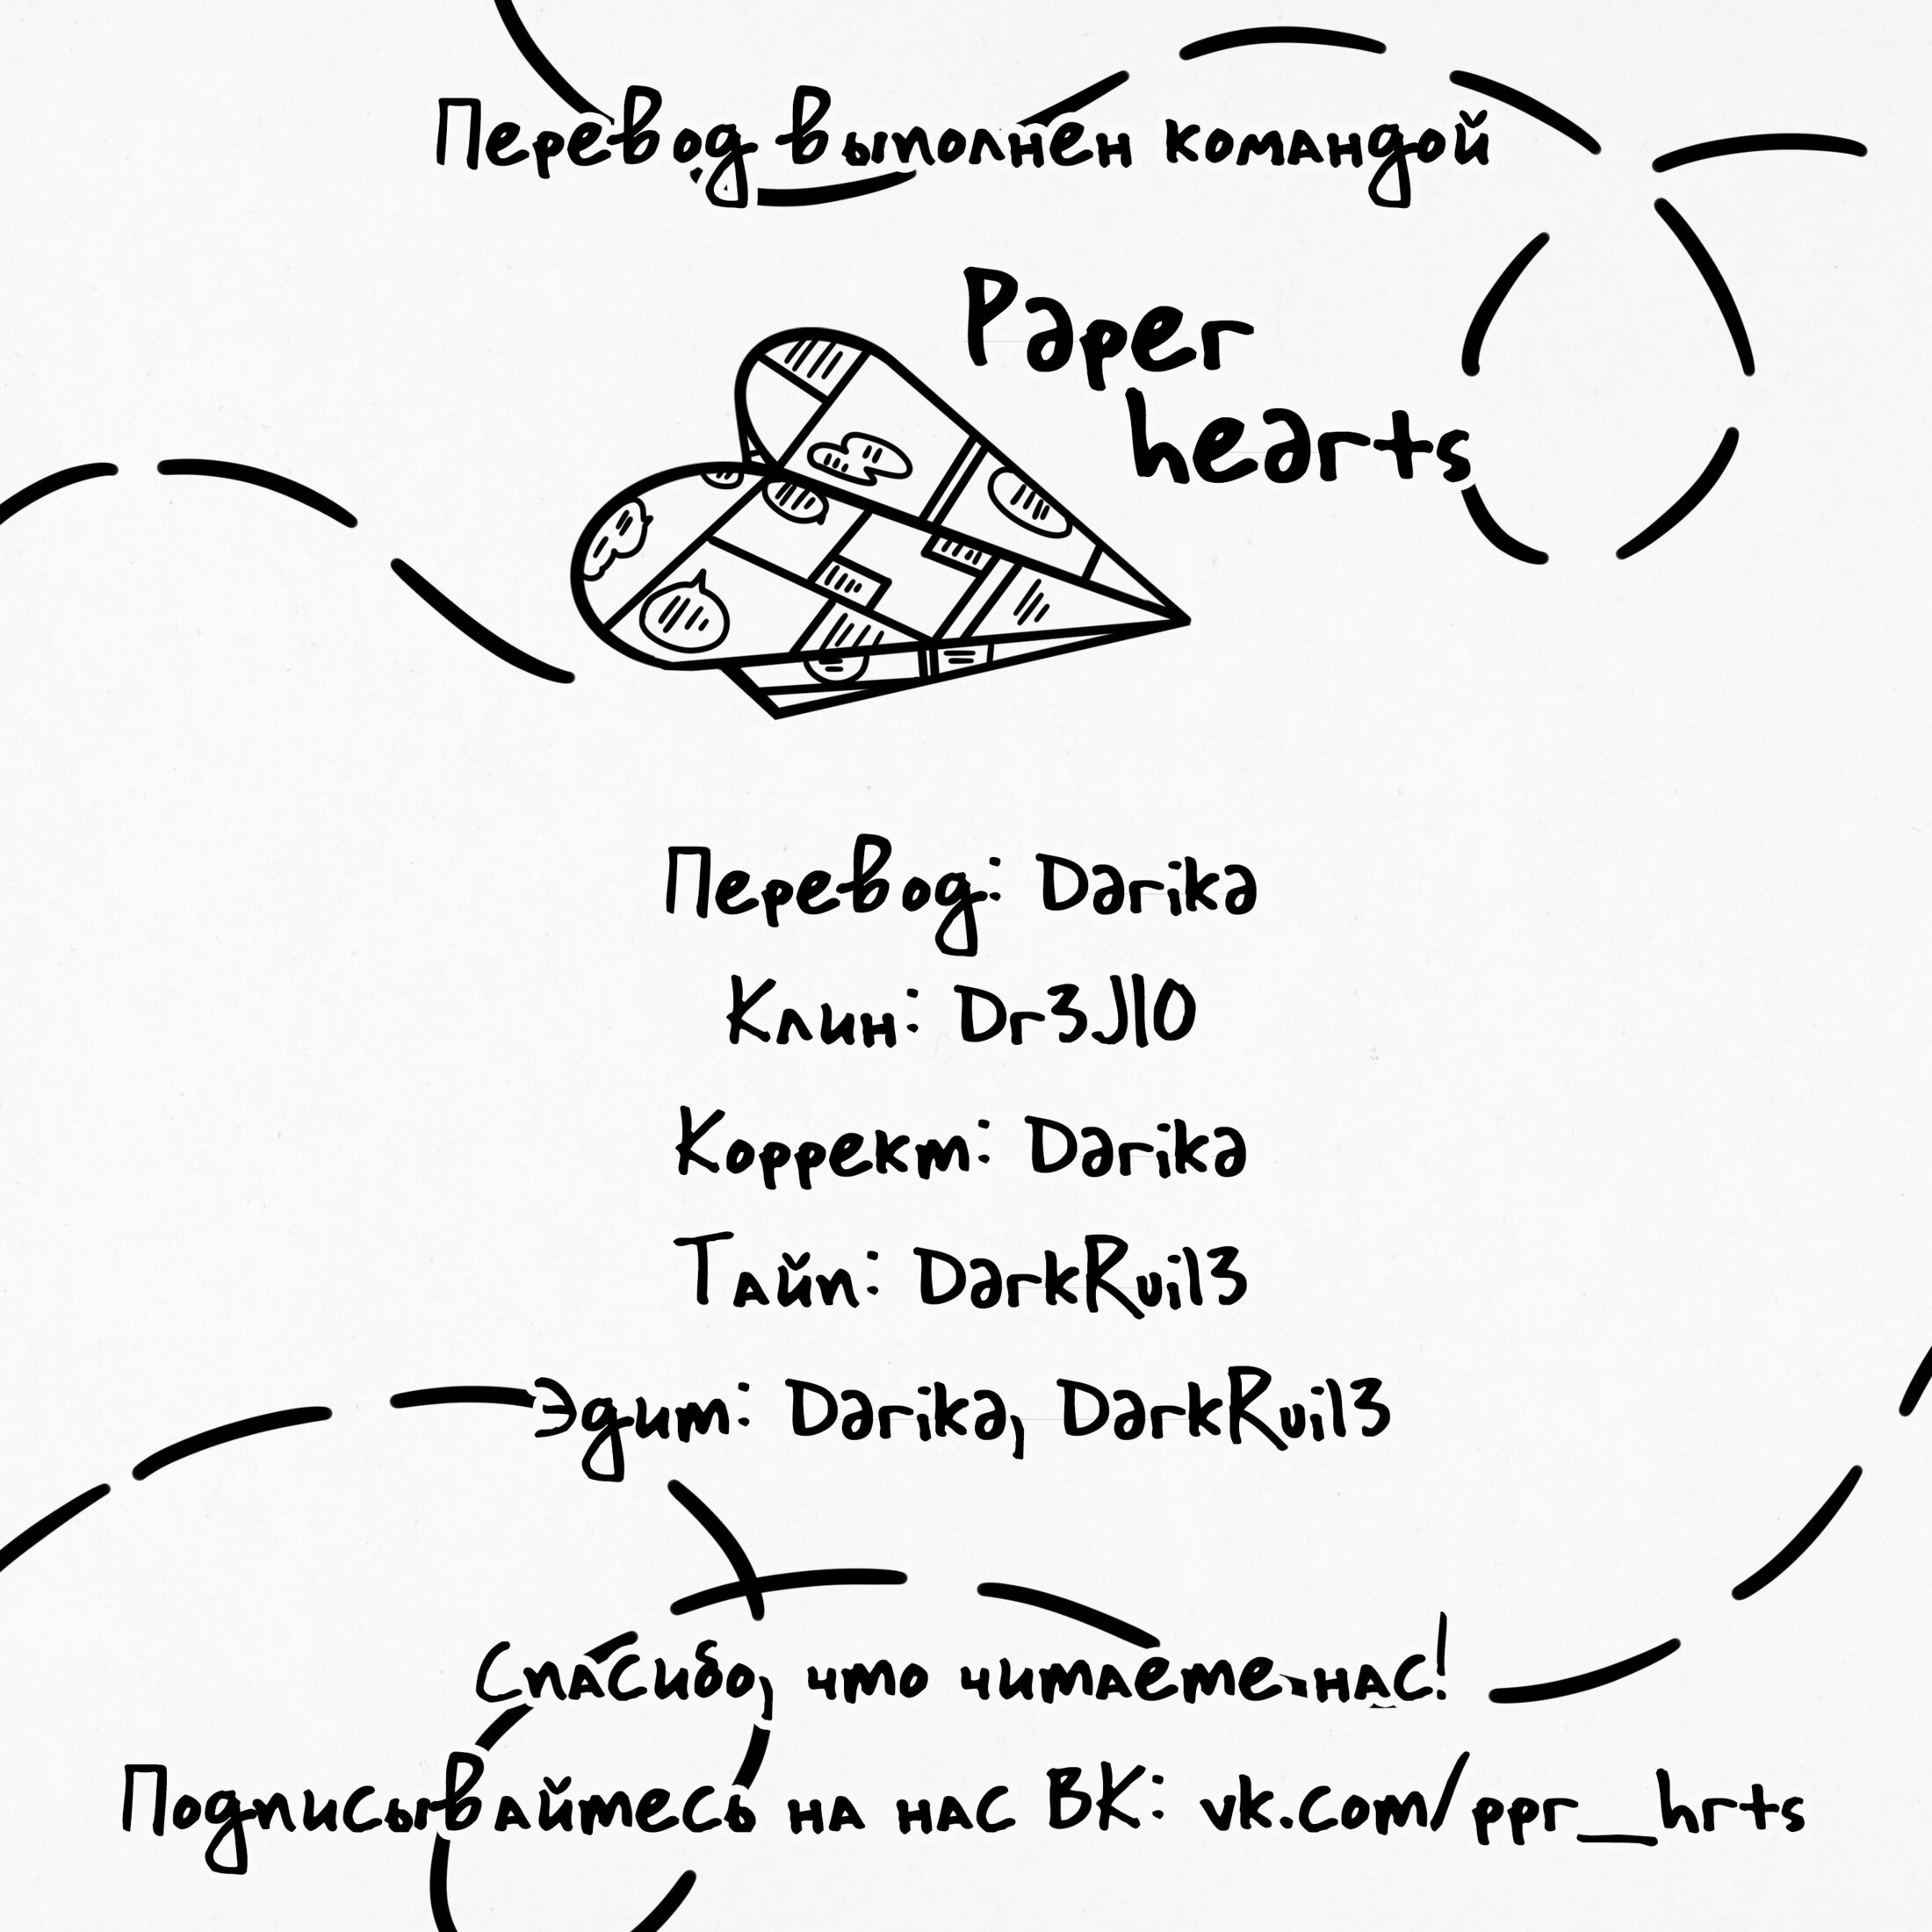 Перевод выполнен командой
Paper
hearts
Перевод: Darika
Клин: Dr3JlO
Коррект: Darika
Тайп: DarkRuil3
Эдит: Darika, DarkRuil3
Спасибо, что читаете нас!
Подписывайтесь на нас ВК: vk.com/ppr_hrts